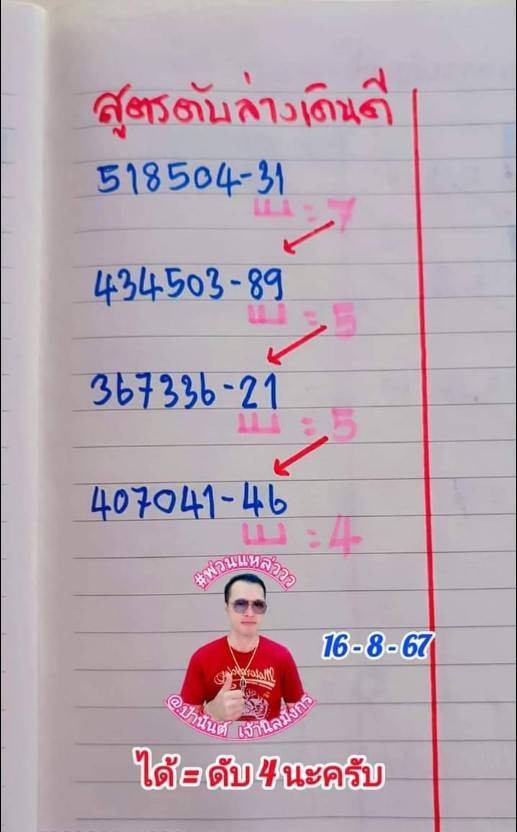 สูตรดับล่างเดินดี
518504-31
บ = 7
434503-89
บ = 5
367336-21
บ = 5
407041-46
บ : 4
#พ่วนแหล่ววว
16-8-67
@ป๋านันต์ เจ้านิลมังกร
ได้ = ดับ 4 นะครับ